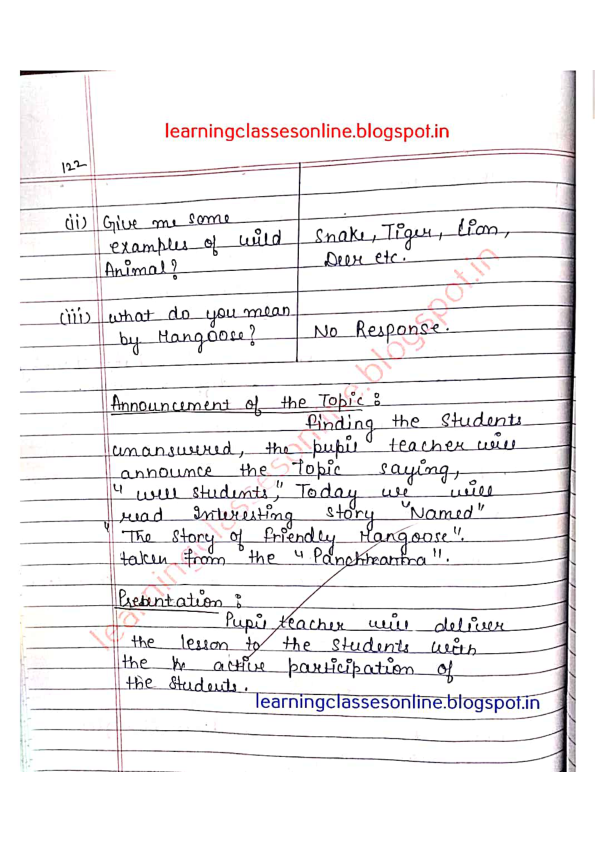 learningclassesonline.blogspot.in
122
(ii) Give me some
examples of wild
Animal?
Snake, Tiger, Lion,
Deer etc.
(iii) what do you mean
by Mangoose?
No Response.
Announcement of the Topic :
Finding the Students
unanswered, the pupil teacher will
announce the Topic saying,
" well students," Today we will
read Interesting story "Named"
" The Story of Friendly Mangoose".
taken from the "Panchtantra".
Presentation :
Pupil teacher will deliver
the lesson to the students with
the active participation of
the students.
learningclassesonline.blogspot.in
learningclassesonline.blogspot.in